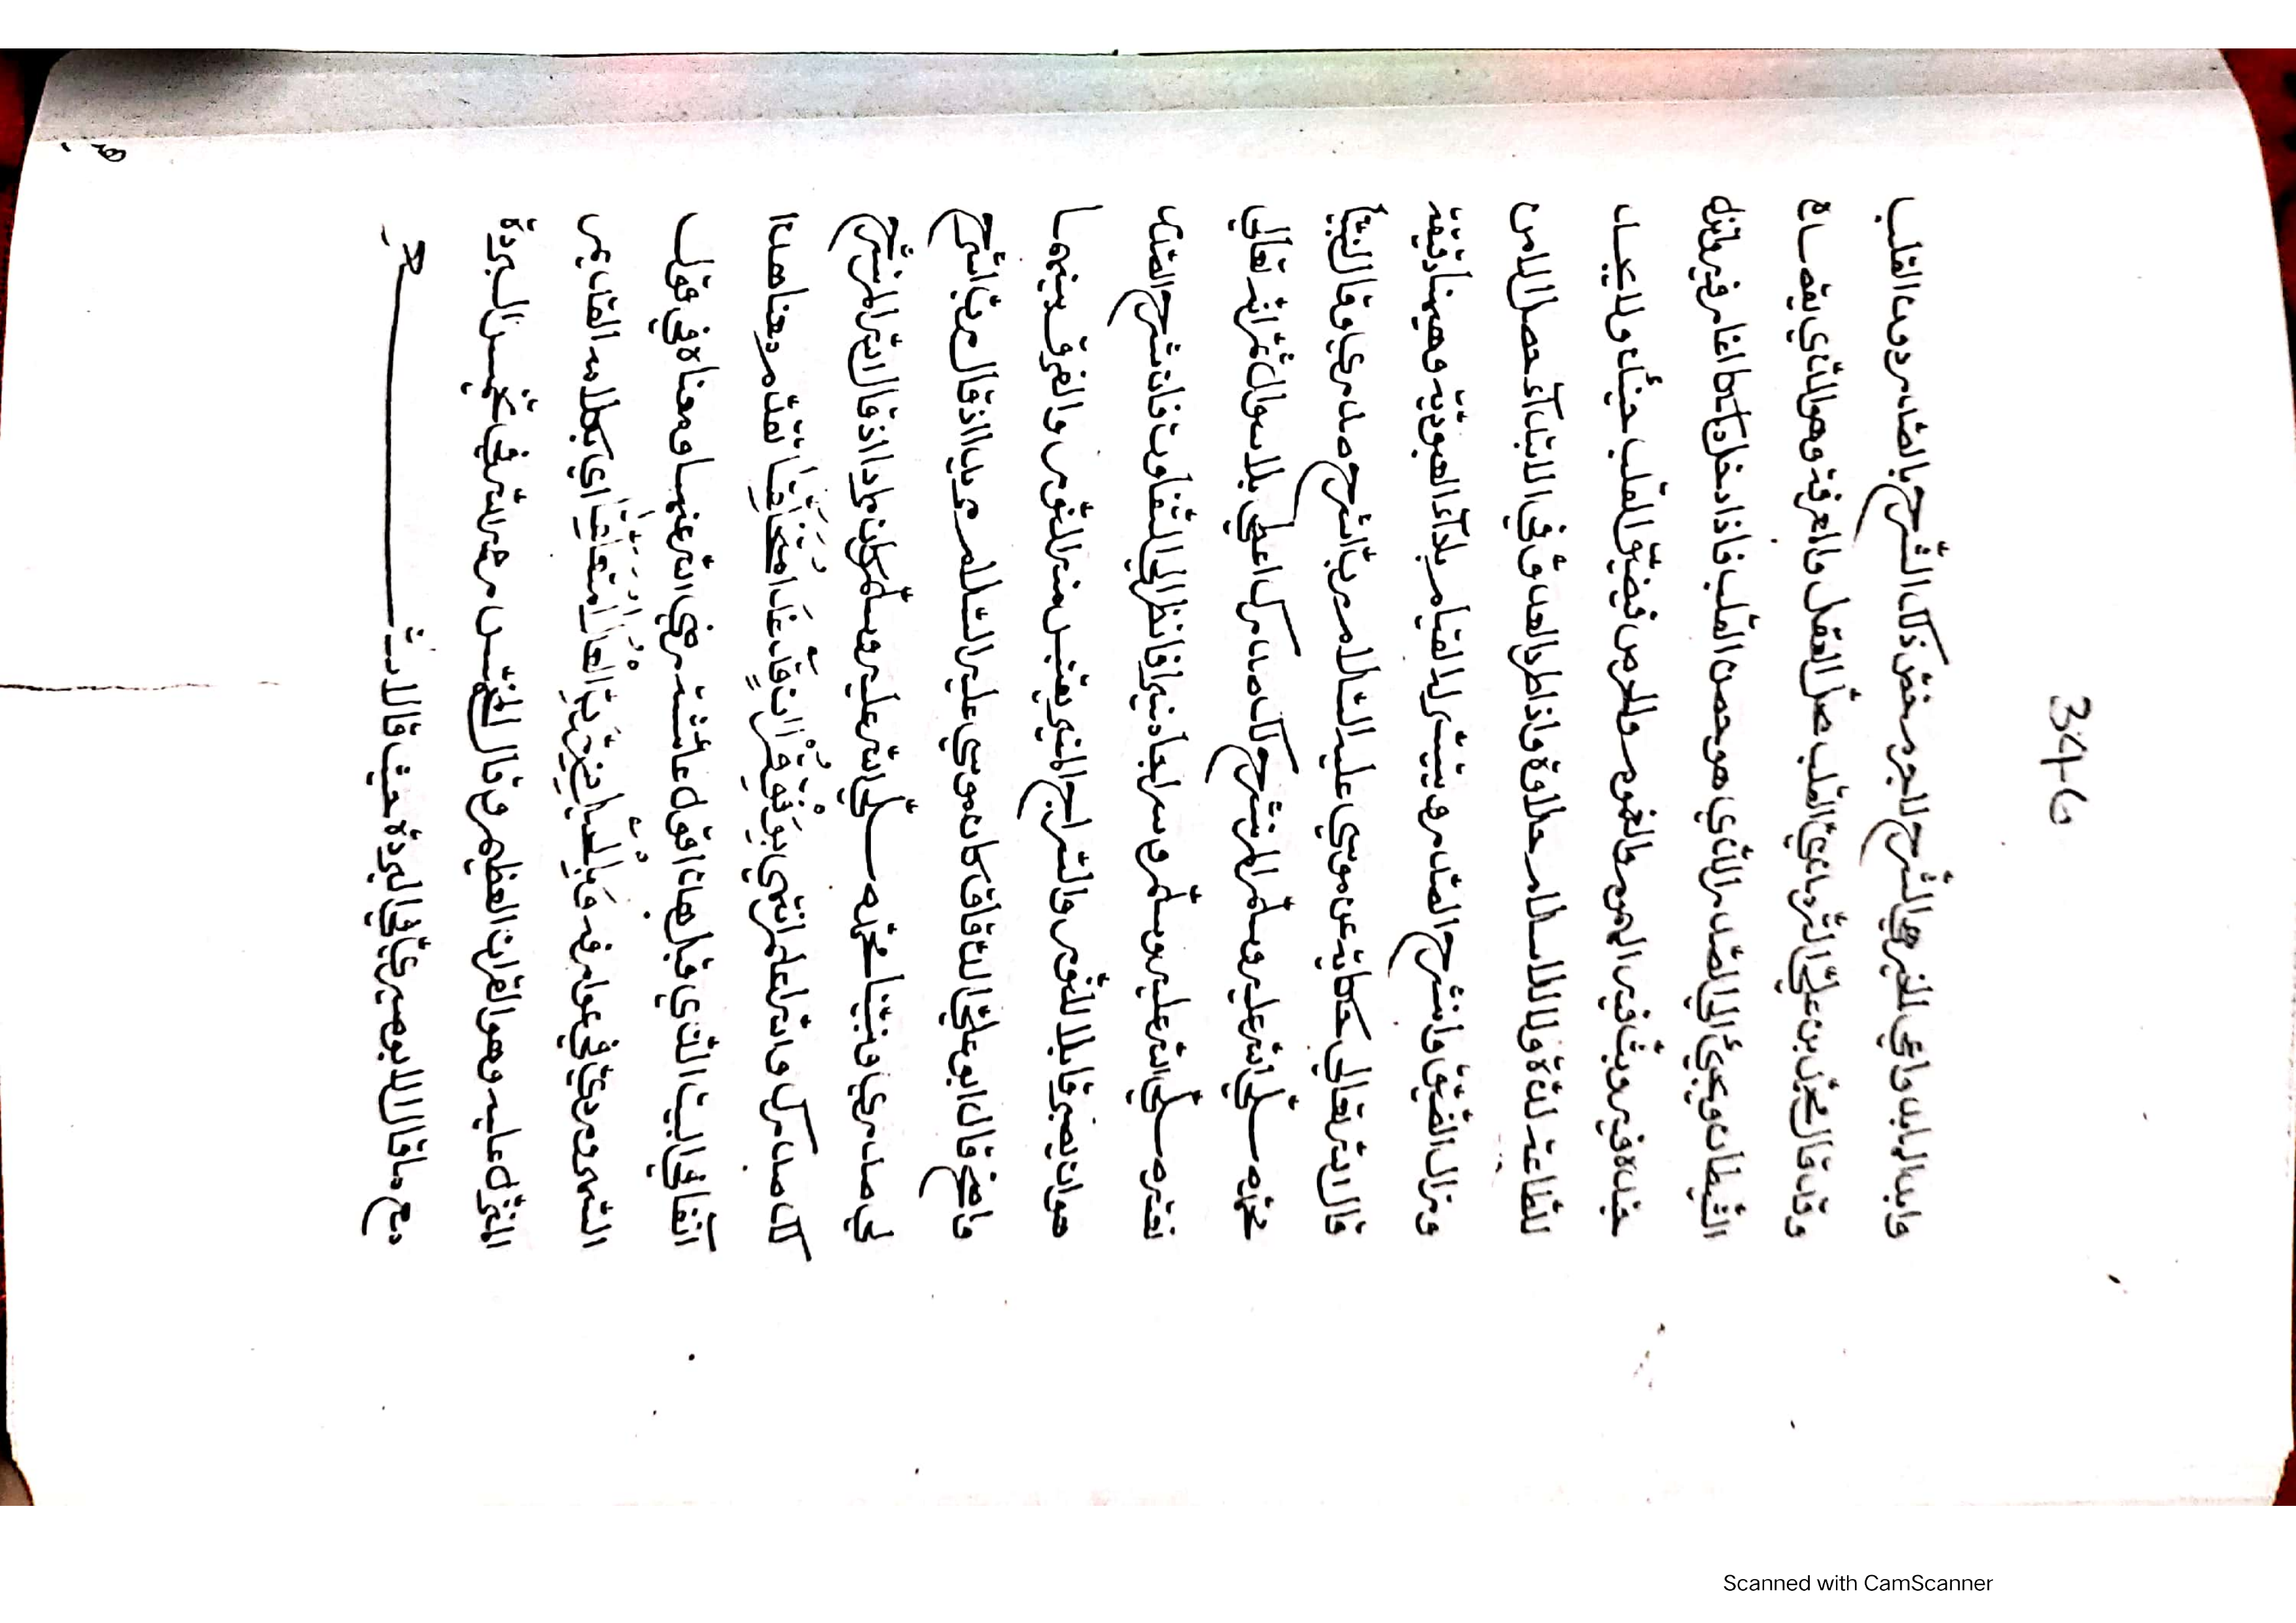 346
وابدالها بدواعي الخير هي الشّرح للجرم مختصّ ذلك الشّرح بالصّدر دون القلب
وقد قال محمّد بن عليّ التّرمذيّ القلب محلّ العقل والمعرفة وهو الّذي يقصده
الشّيطان ويجيئ الي الصّدر الّذي هو حصن القلب فاذا دخل اغار فيه وانزل
جنده فيه وبثّ فيه الهموم والغموم والحرص فيضيّق القلب حينئذ ولا يجد
للطّاعة لذّة ولا للاسلام حلاوة واذا طرد العدوّ في الابتدآء حصل الامن
وزال الضّيق وانشرح الصّدر وتيسّر له القيام بادآء العبوديّة وههنا دقيقة
قال الله تعالي حكاية عن موسي عليه السّلام ربّ اشرح لي صدري وقال لنبيّنا
محمّد صلّي الله عليه وسلّم الم نشرح لك صدرك اعطي بلا سوال ثمّ انّه تعالي
نعته صلّي الله عليه وسلّم وسراجا منيرا فانظر الي التّفاوت فانّ شرح الصّدر
هو ان يصير قابلا للنّور والسّراج المنير يقتبس منه النّور والفرق بينهما
واضح قال ابو عليّ الدّقّاق كان موسي عليه السّلام مريدا اذ قال ربّ اشرح
لي صدري ونبيّنا محمّد صلّي الله عليه وسلّم كان مرادا اذ قال الله الم نشرح
لك صدرك والله اعلم انتهي
الصّاوي في البيت الّذي قبل هذا قول عائشة رضي الله عنها ومعناه في قول
السّهرورديّ في عوارفه
المنزّل عليه وهو القران العظيم وقال المخمّس رحمه الله في تخميس البردة
مع ما قال الابوصيريّ في البردة حيث قالا